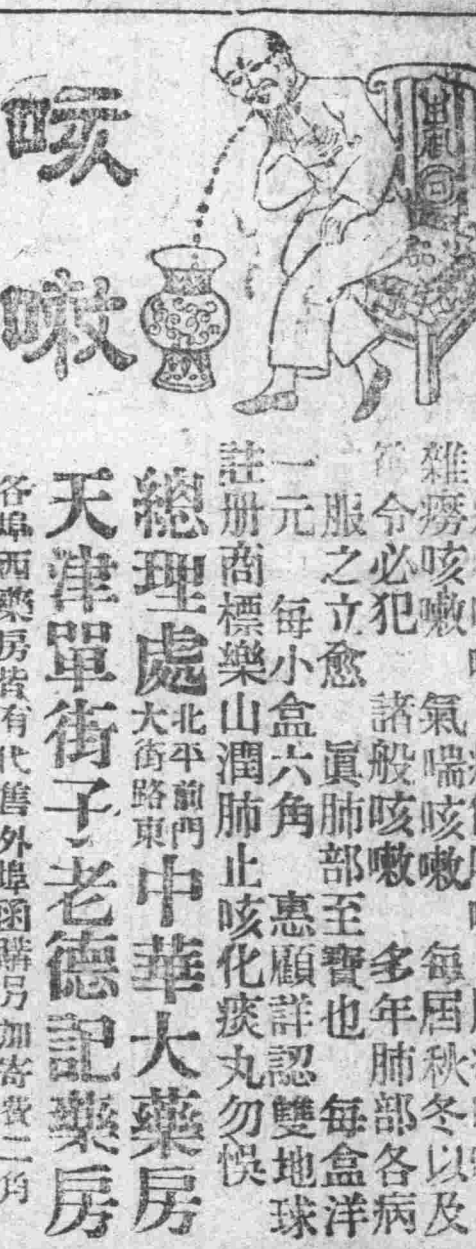 咳嗽
雜癆咳嗽　氣喘咳嗽　每居秋冬以及
令必犯　諸般咳嗽　多年肺部各病
服之立愈　眞肺部至寶也　每盒洋
一元　每小盒六角　惠顧詳認雙地球
註册商標樂山潤肺止咳化痰丸勿悞
總理處北平前門大街路東中華大藥房
天津單街子老德記藥房
各埠西藥房皆有代售外埠函購另加寄費二角